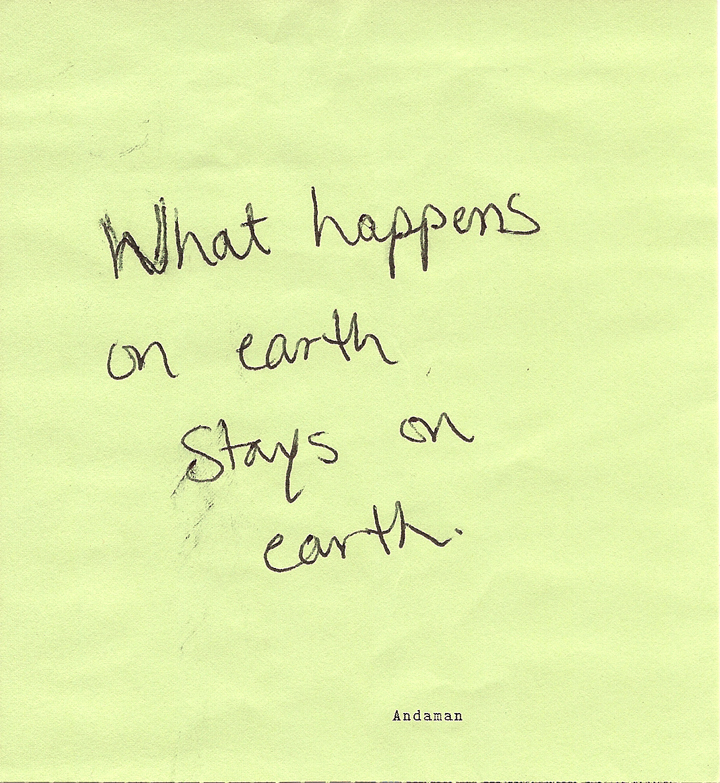 What happens
on earth
Stays on
earth.
Andaman